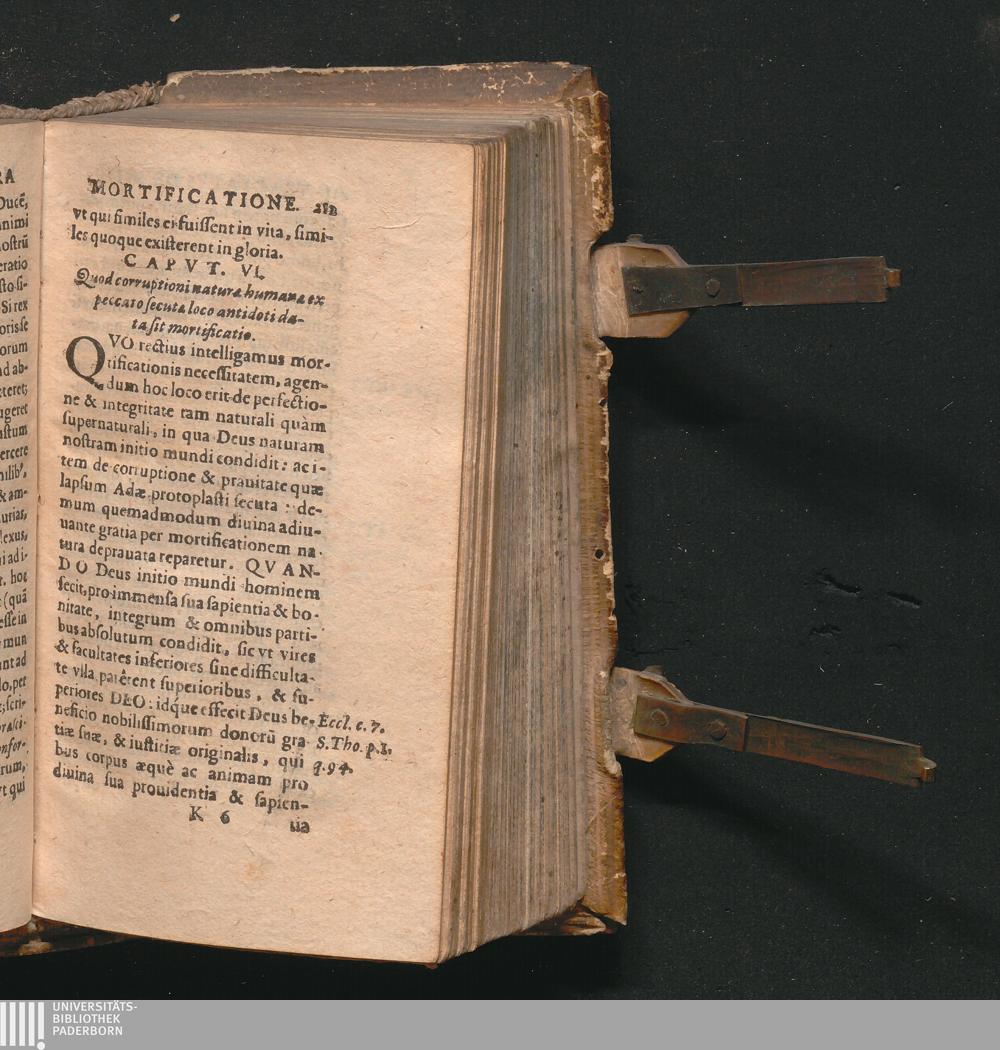 RA
Ducē,
nimi
oftrū
eratio
fto fi-
Si rex
oris fe
orum
ad ab-
cteret;
ugeret
uftum
ercere
& am-
urias,
lexus,
r. hoc
(quā
effe in
mun
unt ad
lo, per
onfor-
rum,
vt qui
MORTIFICATIONE.
vt qui fimiles ei fuiffent in vita, fimi-
les quoque exifterent in gloria.
CAPVT. VI.
Quod corruptioni naturæ humanæ ex
peccato fecuta loco antidoti da-
ta fit mortificatio.
QVO rectius intelligamus mor-
tificationis neceffitatem, agen-
dum hoc loco erit de perfectio-
ne & integritate tam naturali quàm
fupernaturali, in qua Deus naturam
noftram initio mundi condidit: ac i-
tem de corruptione & prauitate quæ
lapfum Adæ protoplafti fecuta: de-
mum quemadmodum diuina adiu-
uante gratia per mortificationem na-
tura deprauata reparetur. QVAN-
DO Deus initio mundi hominem
fecit, pro immenfa fua fapientia & bo-
nitate, integrum & omnibus parti-
bus abfolutum condidit, fic vt vires
& facultates inferiores fine difficulta-
te vlla parêrent fuperioribus, & fu-
periores DEO: idq́ue effecit Deus be-
neficio nobiliffimorum donorū gra-
tiæ fuæ, & iuftitiæ originalis, qui
bus corpus æquè ac animam pro
diuina fua prouidentia & fapien-
K 6 tia
Eccl. c. 7.
S. Tho. p. 1.
q. 94.
UNIVERSITÄTS-
BIBLIOTHEK
PADERBORN